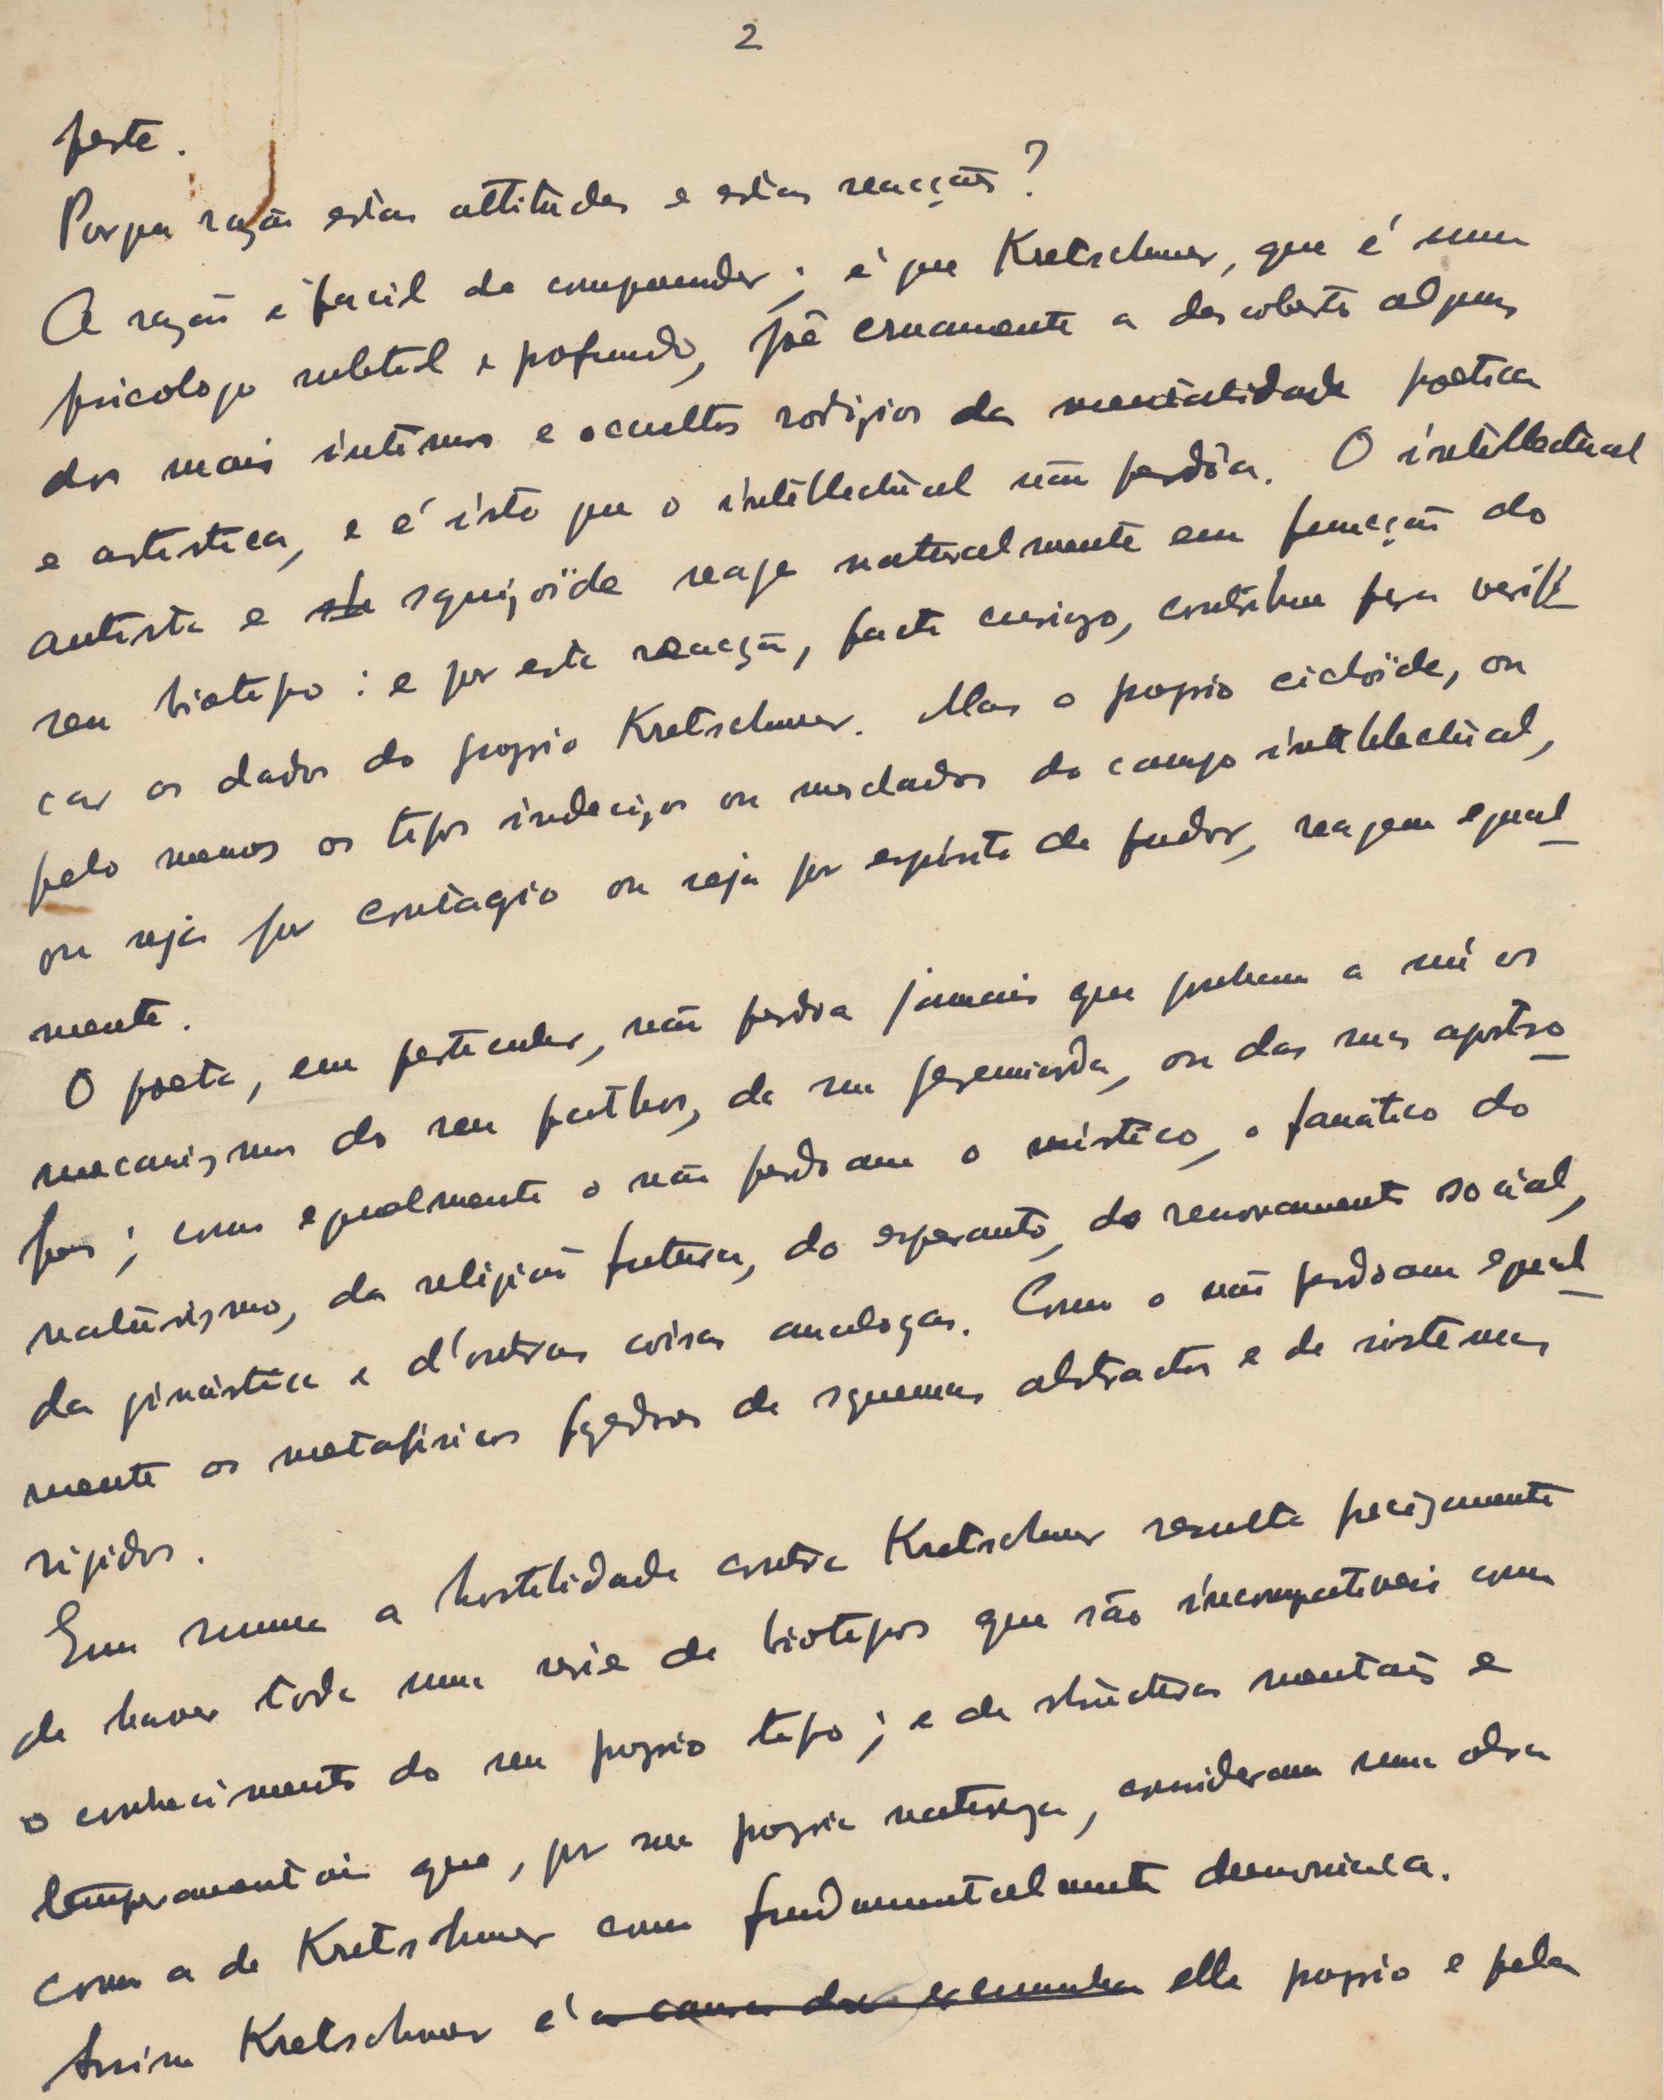 2
peste.
Porque razão estas attitudes e estas reacções?
A razão é facil de comprender; é que Kretschmer, que é um
psicologo subtil e profundo, põe cruamente a descoberto alguns
dos mais intimos e occultos rodizios da mentalidade poetica
e artistica, e é isto que o intellectual não perdôa. O intellectual
autista e squizoïde reage naturalmente em funcção do
seu biotipo: e por esta reacção, facto curiozo, contribue para verifi-
car os dados do proprio Kretschmer. Mas o proprio cicloïde, ou
pelo menos os tipos indecizos ou mesclados do campo intellectual,
ou seja por contagio ou seja por espirito de pudor, reagem egual-
mente.
O poeta, em particular, não perdoa jamais que ponham a nú os
mecanizmos do seu pathos, da sua jeremiada, ou das suas apostro-
fes; como egualmente o não perdoam o mistico, o fanático do
naturizmo, da religião futura, do esperanto, do renovamento social,
da ginástica e d'outras coisas analogas. Como o não perdoam egual-
mente os metafisicos de squemas abstractos e de sistemas
rigidos.
Em summa a hostilidade contra Kretschmer resulta precizamente
de haver toda uma serie de biotipos que são incompativeis com
o conhecimento do seu proprio tipo; e de structuras mentais e
temperamentais que, por sua propria natureza, consideram uma obra
como a de Kretschmer como fundamentalmente demoniaca.
Assim Kretschmer é elle proprio e pela